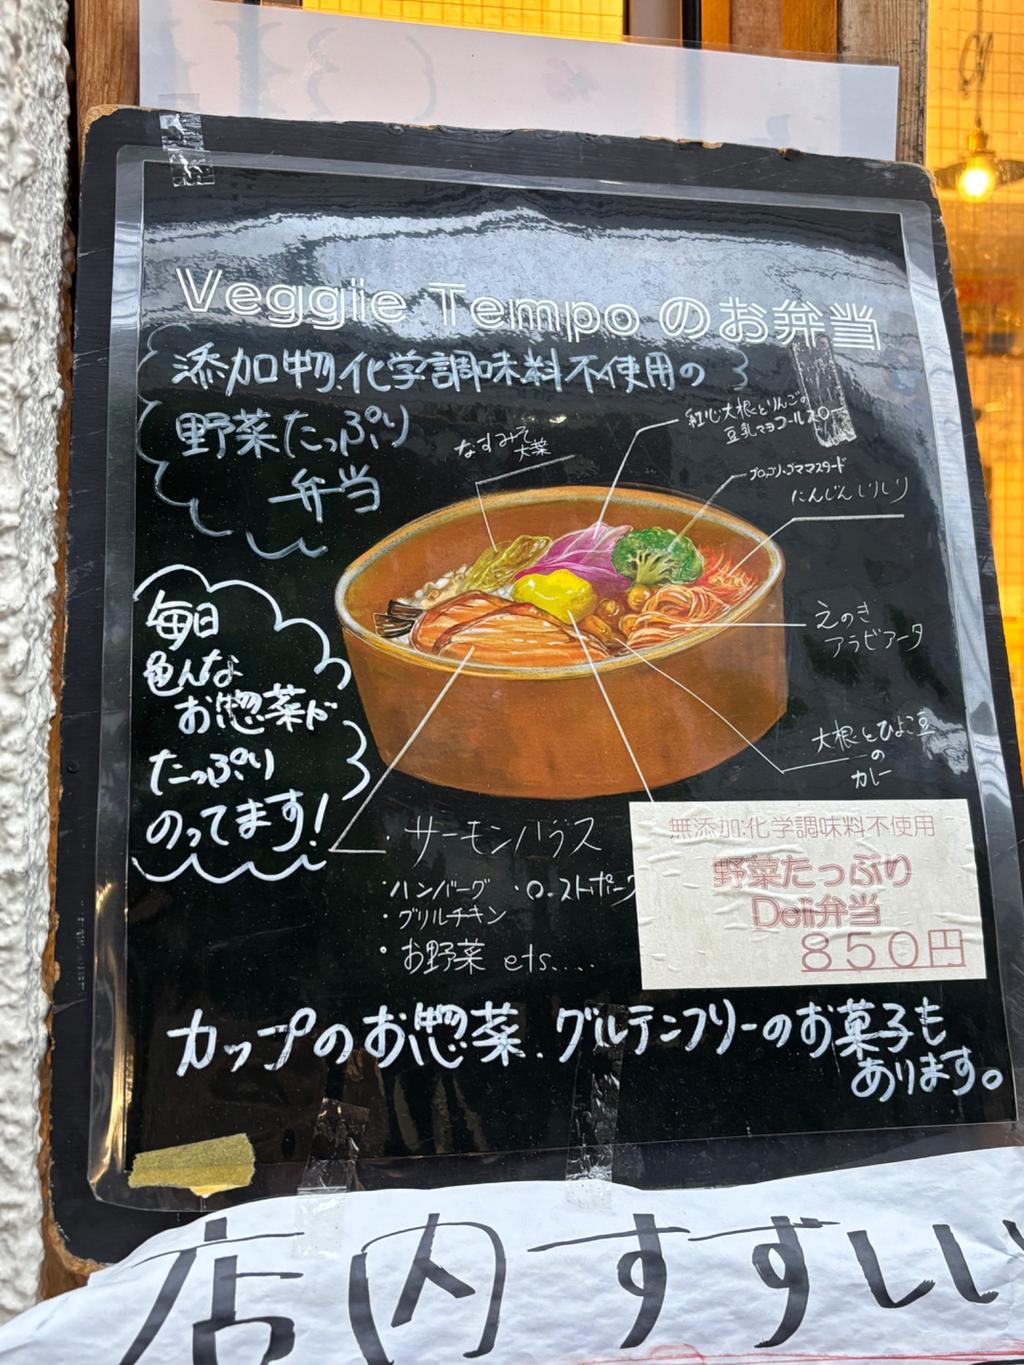 Veggie Tempo のお弁当
添加物.化学調味料不使用の
野菜たっぷり
弁当
なすみそ
大葉
紅心大根とりんごの
豆乳マヨコールスロー
ブロッコリーゴママスタード
にんじんしりしり
えのき
アラビアータ
大根とひよこ豆
の
カレー
毎日
色んな
お惣菜が
たっぷり
のってます!
・サーモンハラス
・ハンバーグ ・ローストポーク
・グリルチキン
・お野菜 ets.....
無添加.化学調味料不使用
野菜たっぷり
Deli弁当
850円
カップのお惣菜.グルテンフリーのお菓子も
あります。
店内すずしい